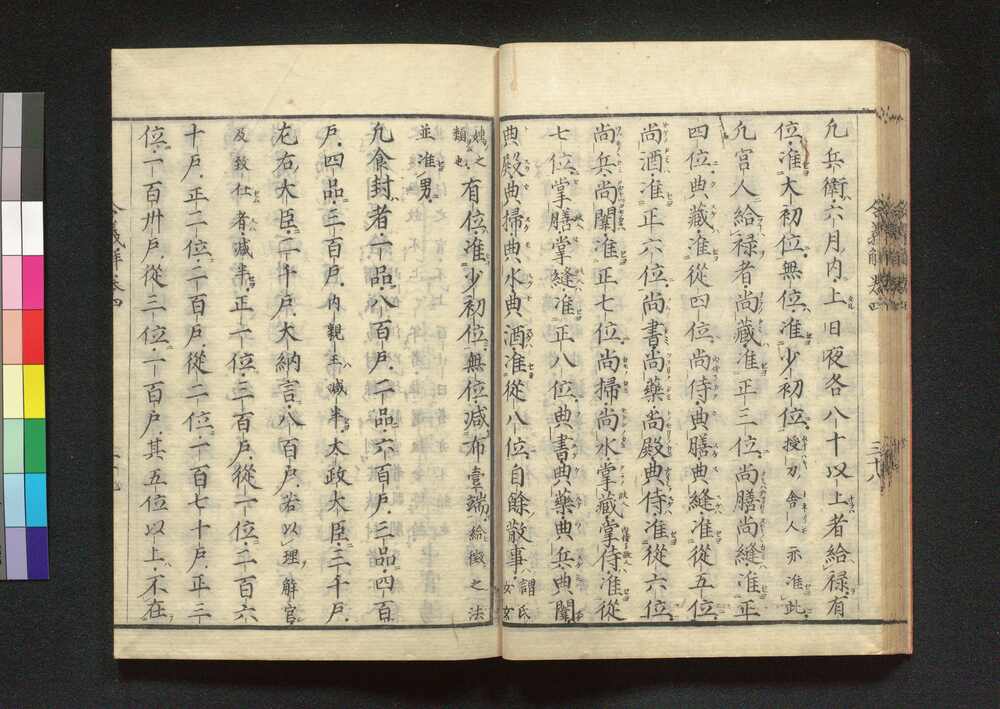 凢兵衛六月内上日夜各八十以上者給祿有
位准大初位無位准少初位授刀舍人亦准此
凢宮人給祿者尚藏准正三位尚膳尚縫准正
四位典藏准從四位尚侍典膳典縫准從五位
尚酒准正六位尚書尚藥尚殿典侍准從六位
尚兵尚闈准正七位尚掃尚水掌藏掌侍准從
七位掌膳掌縫准正八位典書典藥典兵典闈
典殿典掃典水典酒准從八位自餘散事謂氏女女
嬬之類也有位准少初位無位减布壹端給徴之法
並准男
凢食封者一品八百戸二品六百戸三品四百
戸四品三百戸内親王减半太政大臣三千戸
左右大臣二千戸大納言八百戸若以理解官
及致仕者减半正一位三百戸從一位二百六
十戸正二位二百戸從二位一百七十戸正三
位一百卅戸從三位一百戸其五位以上不在